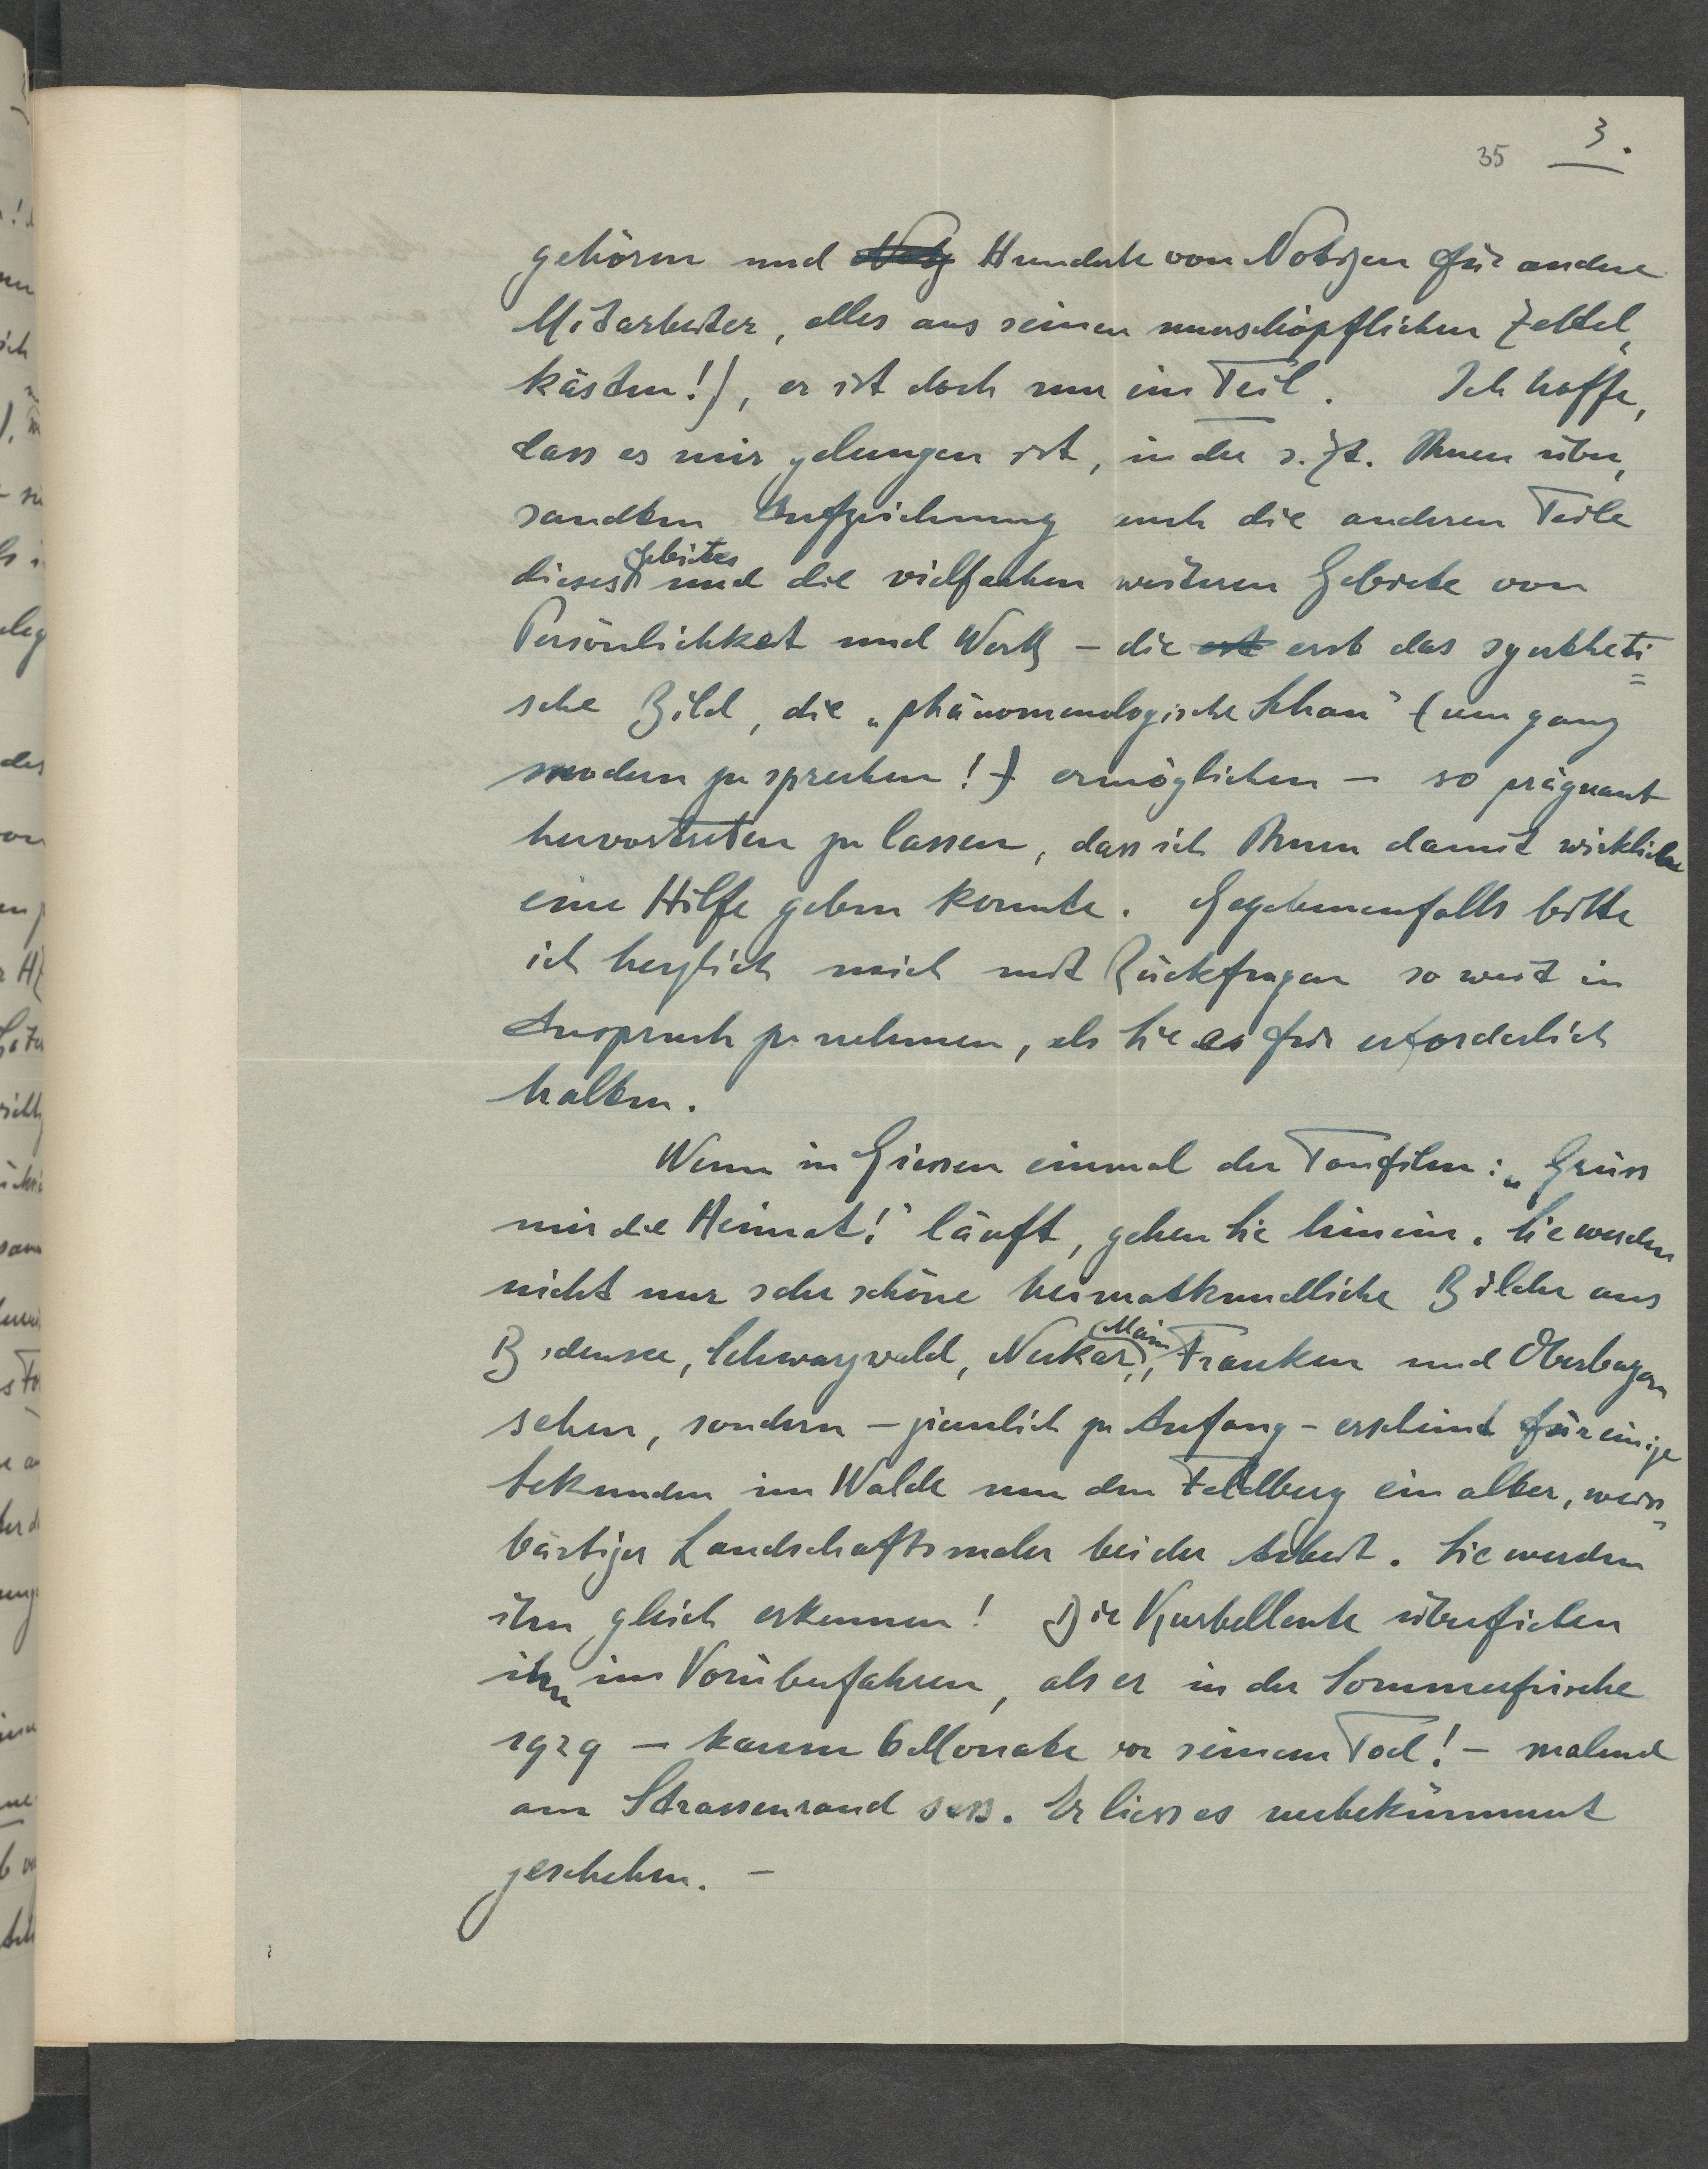 35 3.
gehören und Hunderte von Notizen für andere
Mitarbeiter, alles aus seinen unerschöpflichen Zettel„
kästen!), er ist doch nur ein Teil. Ich hoffe,
dass es mir gelungen ist, in der s. Zt. Ihnen über„
sandten Aufzeichnung auch die anderen Teile
dieses Gebietes und die vielfachen weiteren Gebiete von
Persönlichkeit und Werk – die erst das syntheti=
sche Bild, die „phänomenologische Schau“ (um ganz
modern zu sprechen!) ermöglichen – so prägnant
hervortreten zu lassen, dass ich Ihnen damit wirkliche
eine Hilfe geben konnte. Gegebenenfalls bitte
ich herzlich mich mit Rückfragen so weit in
Anspruch zu nehmen, als Sie es für erforderlich
halten.
Wenn in Giessen einmal der Tonfilm: „Grüss
mir die Heimat!“ läuft, gehen Sie hinein. Sie werden
nicht nur sehr schöne heimatkundliche Bilder aus
Bodensee, Schwarzwald, Neckar, Main, Franken und Oberbayern
sehen, sondern – ziemlich zu Anfang – erscheint für einige
Sekunden im Walde um den Feldberg ein alter, weiss„
bärtiger Landschaftsmaler bei der Arbeit. Sie werden
ihn gleich erkennen! Die Kurbelleute überfielen
ihn im Vorüberfahren, als er in der Sommerfrische
1929 – kaum 6 Monate vor seinem Tod! – malend
am Strassenrand sass. Er liess es unbekümmert
geschehen. –